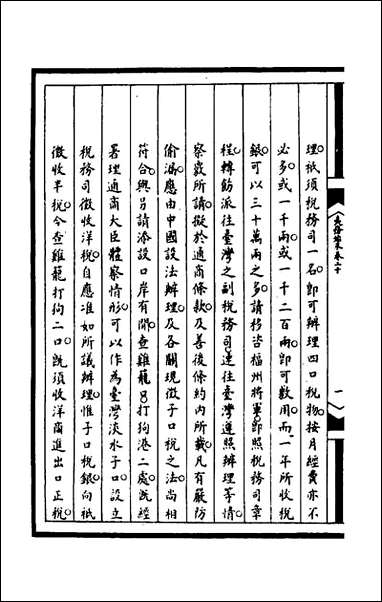 理。祇須稅務司一名。即可辦理四口稅物。按月經費亦不
必多。或一千兩。或一千二百兩。即可敷用。而一年所收稅
銀。可以三十萬兩之多。請移咨福州將軍。即照稅務司章
程。轉飭派往臺灣之副稅務司速往臺灣。遵照辦理等情。
察覈所請。擬於通商條款。及善後條約內所載。凡有嚴防
偷漏。應由中國設法辦理。及各關現徵子口稅之法。尚相
符合。興另請添設口岸有間。查雞籠口打狗港二處。既經
署理通商大臣體察情形。可以作為臺灣淡水子口。設立
稅務司徵收洋稅。自應准如所議辦理。惟子口稅銀。向祇
徵收半稅。今查雞籠打狗二口。既須收洋商進出口正稅。
卷二十
一